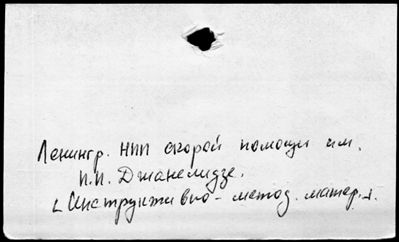 Ленингр. НИИ скорой помощи им.
И.И. Джанелидзе.
[Инструктивно-метод. матер.].